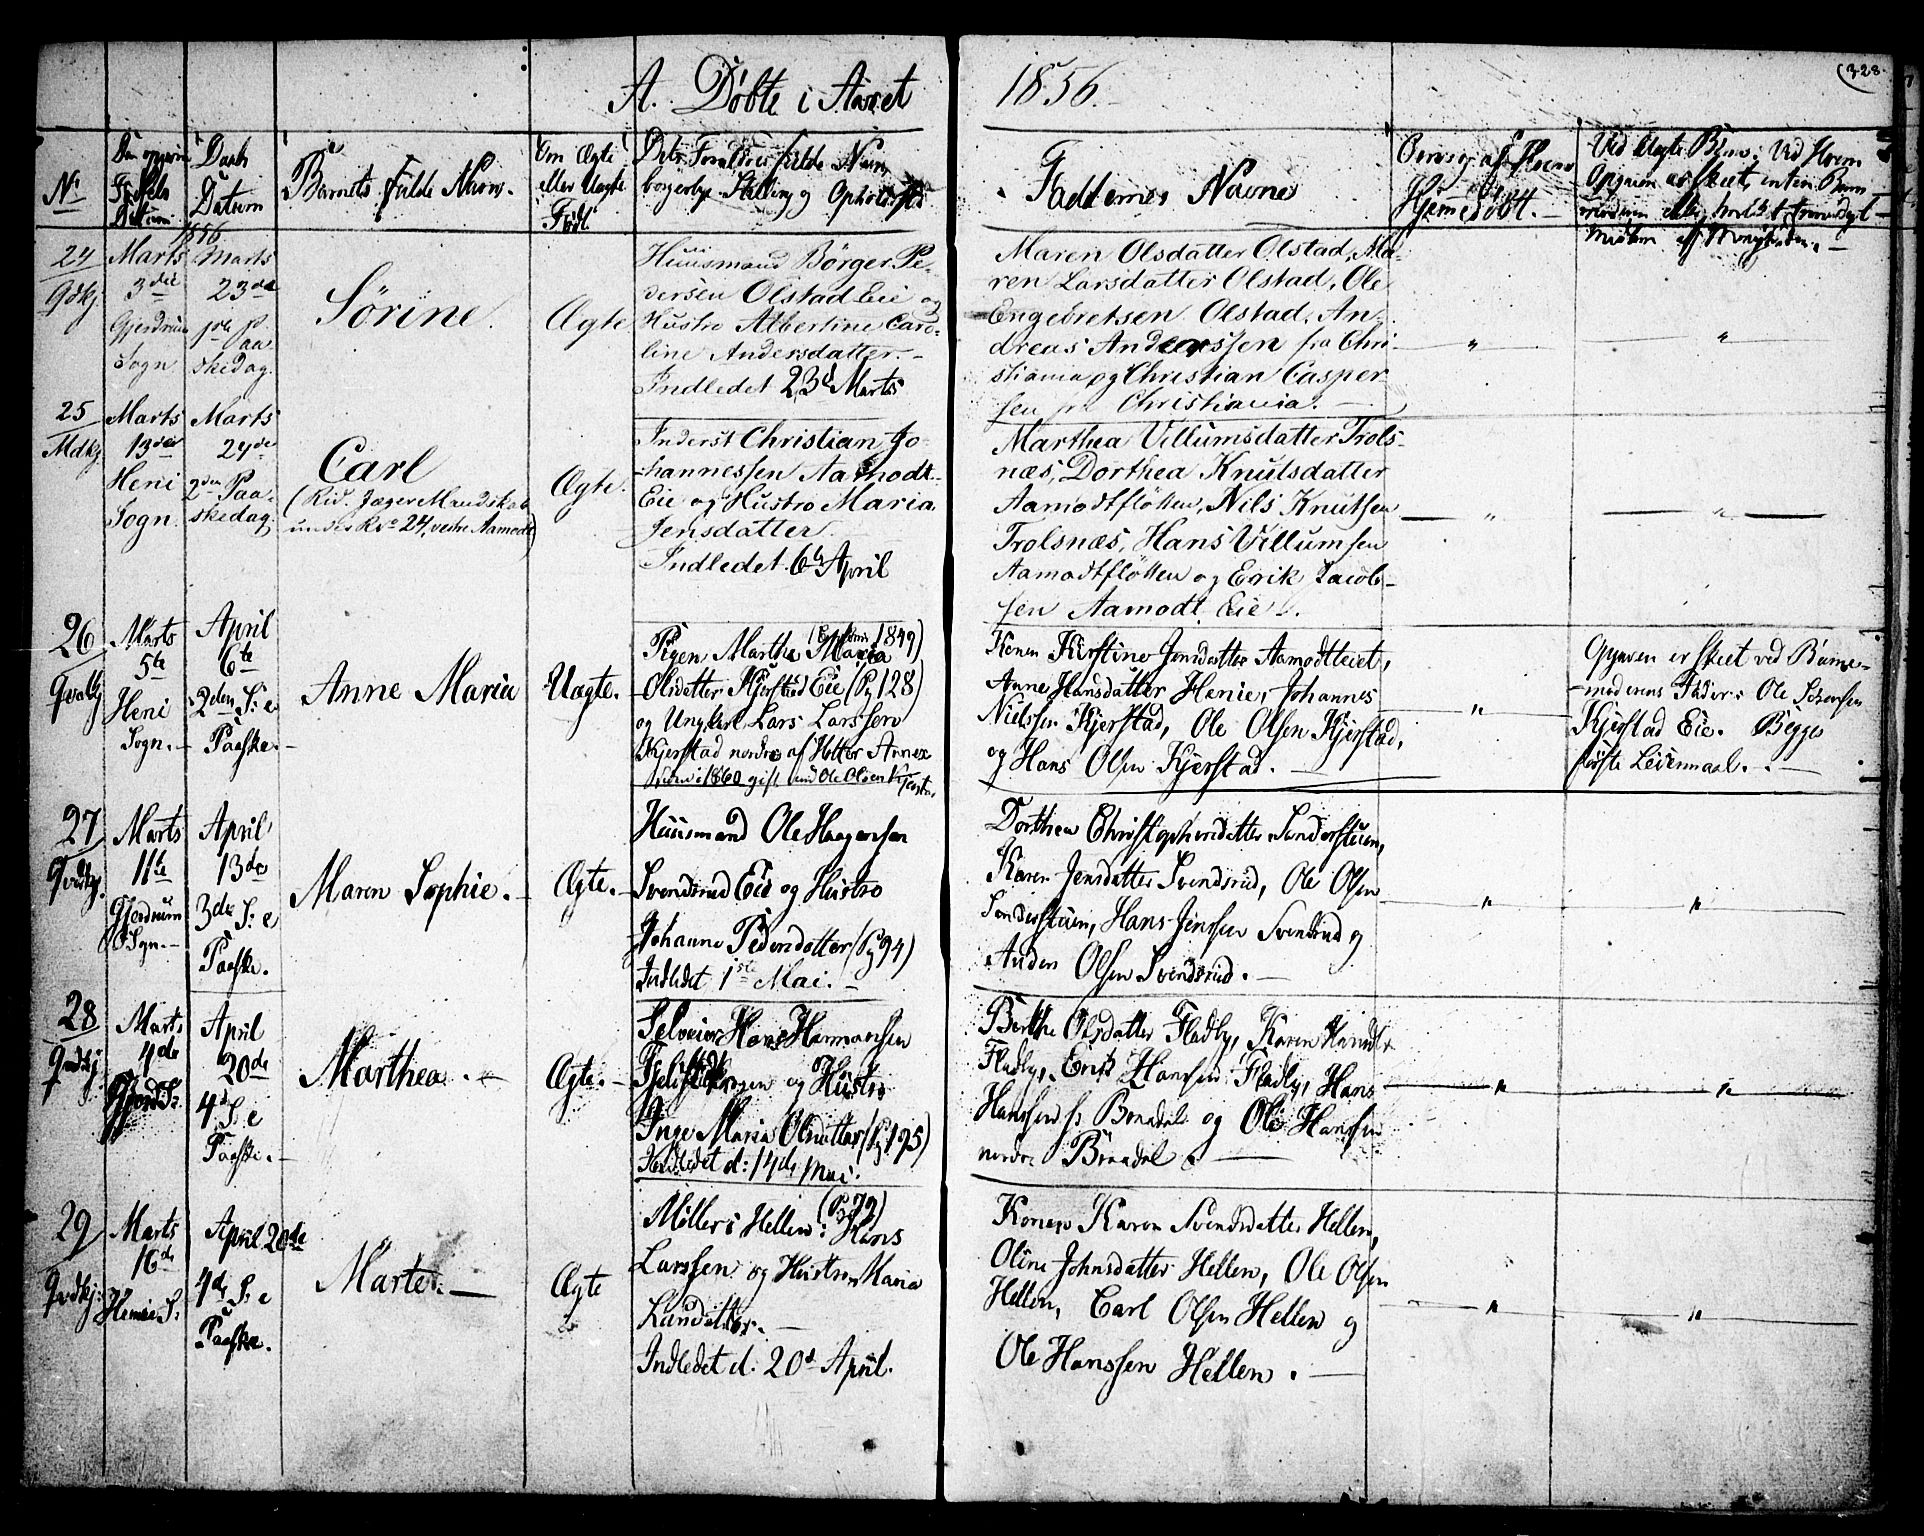 A. Döbte i Aaret 1856.
328
No
Datum
Barnets fulde Navn.
Om Ægte
eller Uægte
Født.
Faddernes Navne
Hjemmedøbt.
1856
24
Gdkj
Marts
3die
Gjerdrum
Sogn
Marts
23de
1ste Paa
skedag.
Sörine.
Ægte
Huusmand Börger Pe-
dersen Olstad Eie og
Hustro Albertine Caro-
line Andersdatter.-
Indledet 23d Marts
Maren Olsdatter Olstad, Ma-
ren Larsdatter Olstad, Ole
Engebretsen Olstad, An-
dreas Anderssen fra Chri-
stiania og Christian Casper-
sen fra Christiania. -
"
"
25
Mdkj
Marts
13de
Heni
Sogn.
Marts
24de
2den Paa-
skedag.
Carl
(Rid. Jæger Mandskab
under No 24, vestre Aamodt)
Ægte.
Inderst Christian Jo-
hannessen Aamodt-
Eie og Hustro Maria
Jensdatter.
Indledet 6te April
Marthea Villumsdatter Trols-
næs, Dorthea Knutsdatter
Aamodtflötten, Nils Knutsen
Trolsnæs, Hans Villumsen
Aamodtflötten og Erik Jacob-
sen Aamodt Eie.
"
"
26
Marts
5te
Heni
Sogn.-
April
6te
2den S. e
Paaske.-
Anne Maria
Uægte.
Pigen Marthe Maria
1849)
Olsdatter Kjerstad Eie (Pg 128)
og Ungkarl Lars Larssen
Kjerstad nordre af Annex
1860 gift med Ole Olsen
Konen Kirstine Jensdatter Aamodteiet,
Anne Hansdatter Henie, Johannes
Nielssen Kjerstad, Ole Olsen Kjerstad,
og Hans Olsen Kjerstad. -
"
Opgiven er skeet ved Barne-
moderens Fader: Ole Sörensen
Kjerstad Eie. Begges
förste Leiermaal. -
27
Marts
11te
Gjerdrum
Sogn.-
April
13de
3die S. e
Paaske.
Maren Sophie.-
Ægte.-
Huusmand Ole Haagensen
Svendsrud Eie og Hustro
Johanne Pedersdatter (Pg 94)
Indledet 1ste Mai.-
Dorthea Christophersdatter Sanderstuen,
Karen Jensdatter Svendsrud, Ole Olsen
Sanderstuen, Hans Jenssen Svendsrud og
Anders Olsen Svendsrud.-
"
"
28
Marts
4de
Gjerd S.
April
20de
4d S. e
Paaske.-
Marthea.-
Ægte.-
Selveier Hans Hermansen
og Hustro
Inge Maria Olsdatter (Pg 195)
Indledet d: 14de Mai.
Berthe Olsdatter Fladby, Karen Hansdtr
Fladby, Erik Hansen Fladby, Hans
Hanssen s. Brændal og Ole Hanssen
nordre Brændal.-
"
"
29
Marts
16de
Henie S.
April 20de
4de S. e
Paaske.
Marte.-
Ægte
(Pg 79)
Møller i Hellen: Hans
Larssen og Hustru Maria
Indledet d. 20d April.
Konen Karen Svendsdatter Hellen,
Oline Johnsdatter Hellen, Ole Olsen
Hellen, Carl Olsen Hellen og
Ole Hanssen Hellen.-
"
"